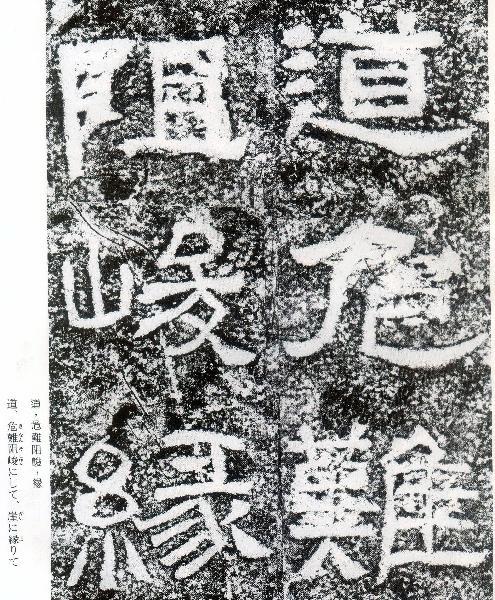 道危難
阻峻緣
道・危難阻峻・縁
道、危難阻峻にして、崖に縁りて